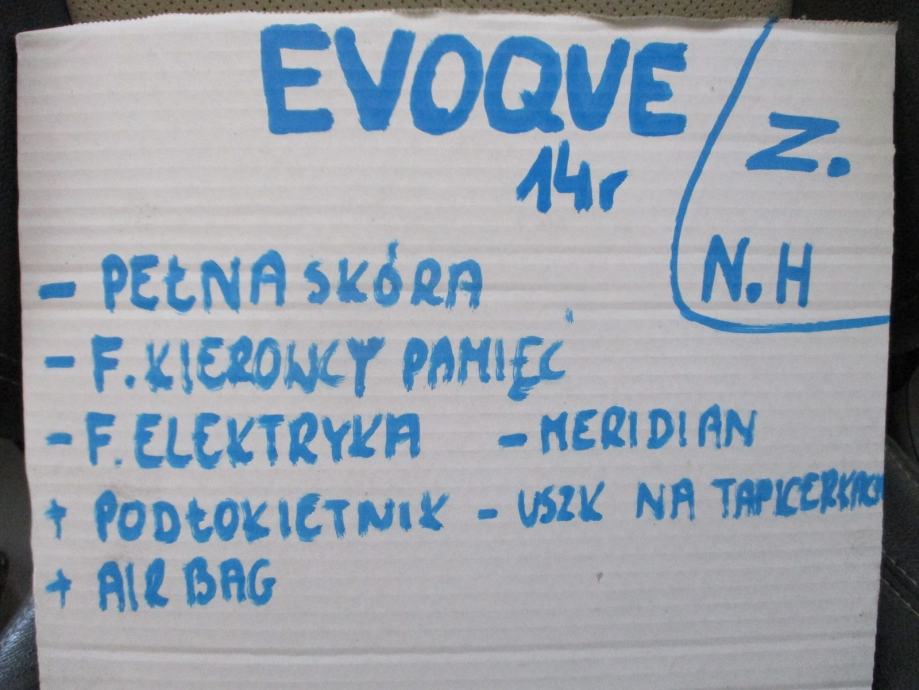 EVOQUE
14r
Z.
N.H
- PEŁNA SKÓRA
- F. KIEROWCY PAMIĘĆ
- F. ELEKTRYKA - MERIDIAN
+ PODŁOKIETNIK - USZK NA TAPICERKACH
+ AIR BAG